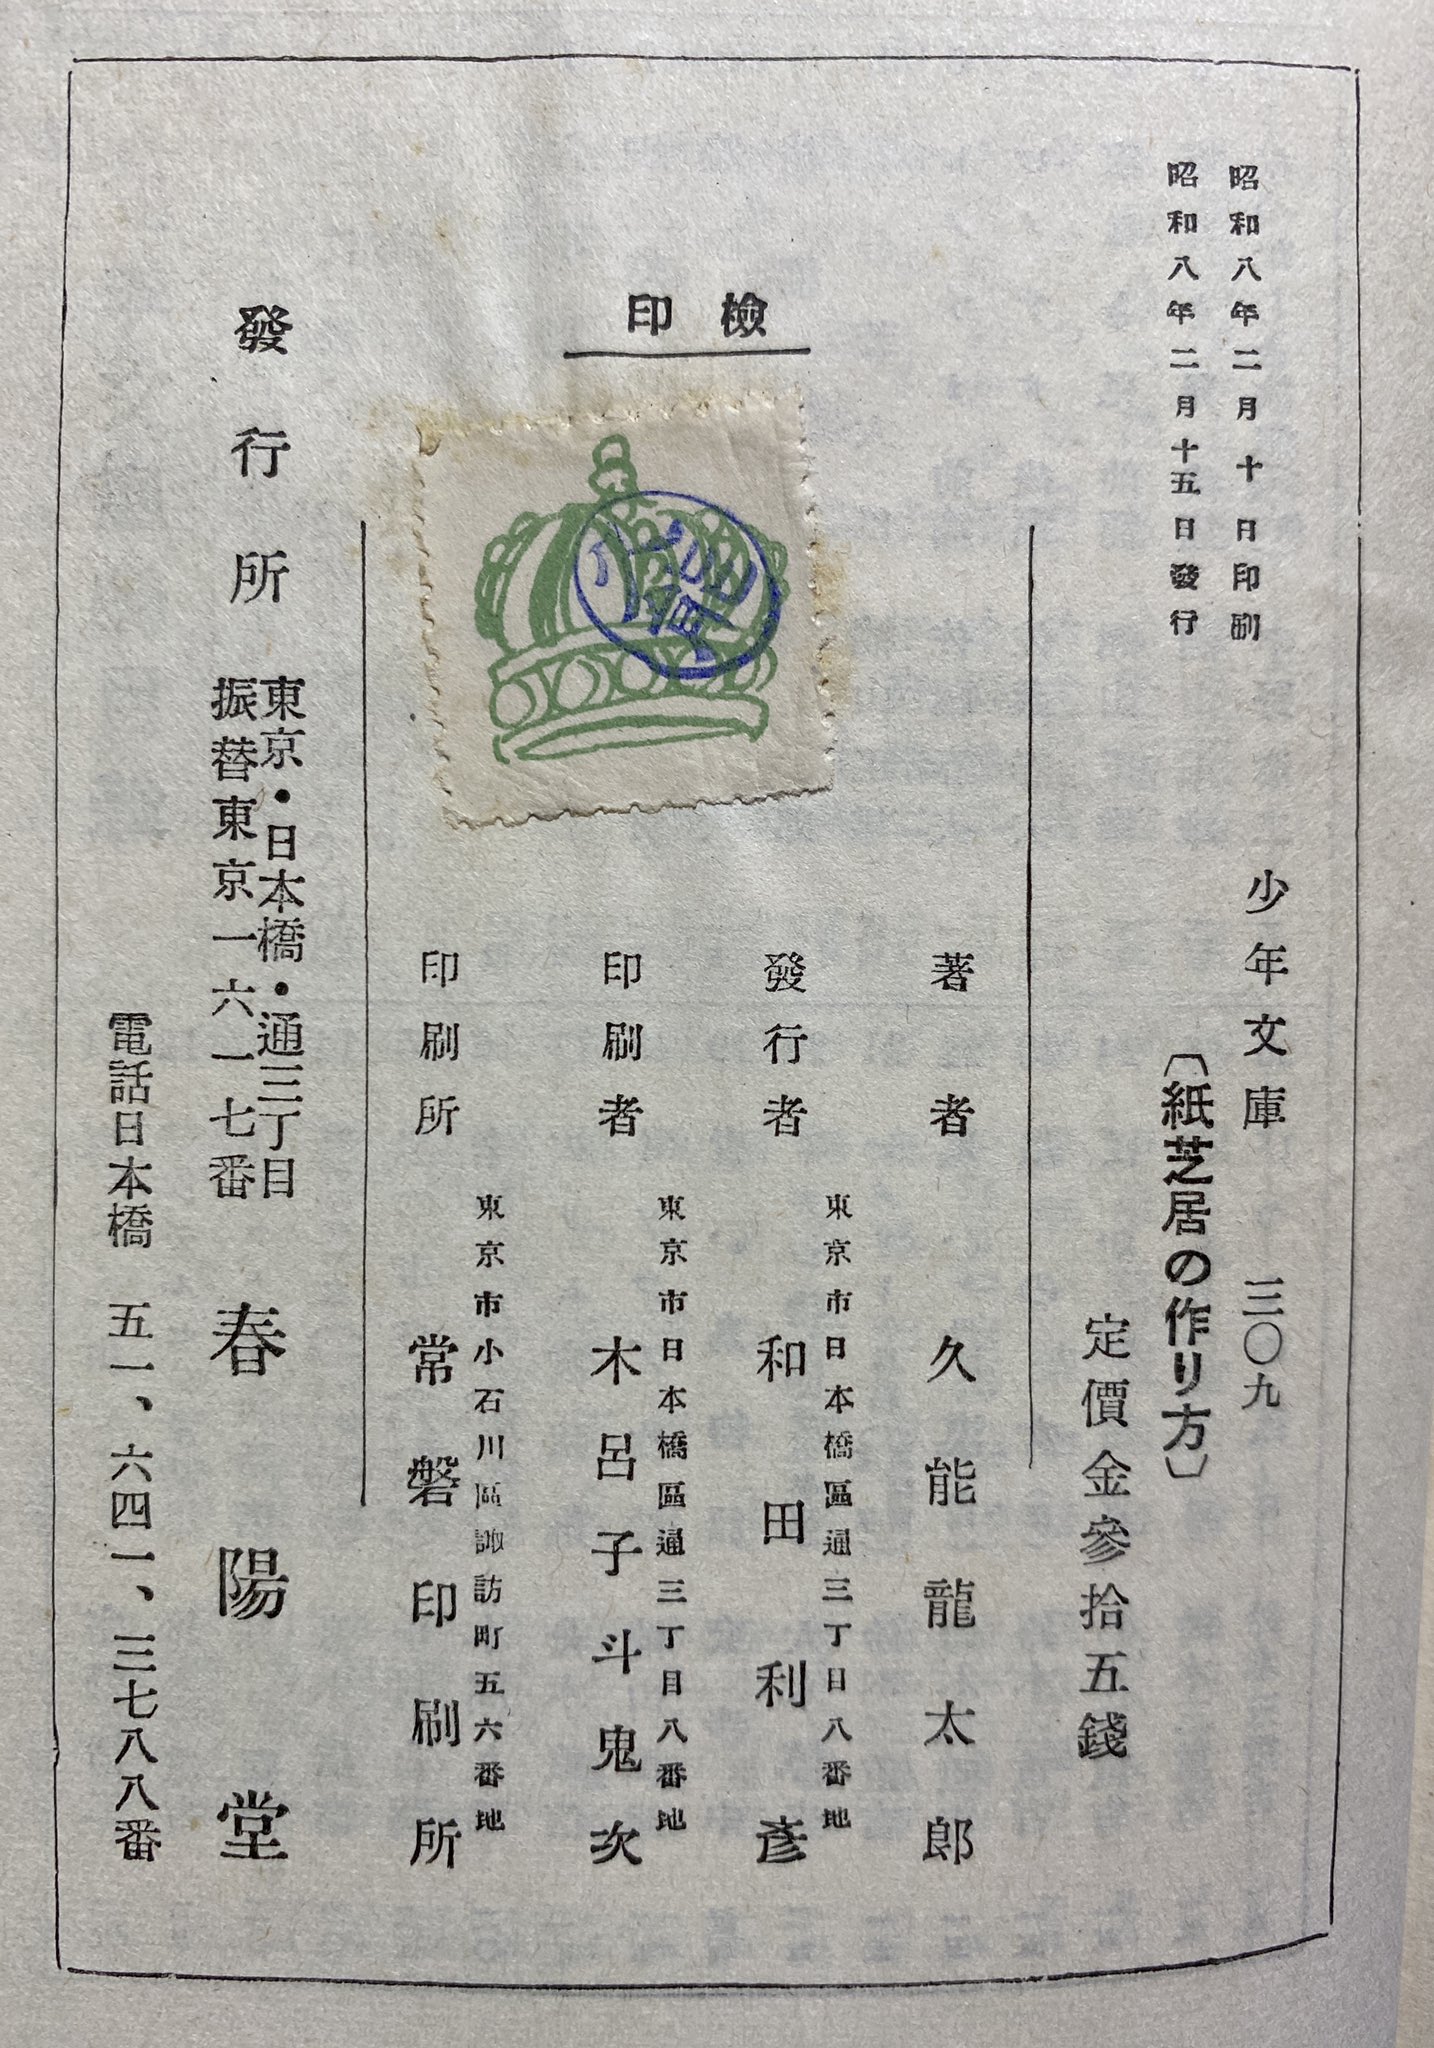 昭和八年二月十日印刷
昭和八年二月十五日發行
少年文庫 三〇九
〔紙芝居の作り方〕
定價金參拾五錢
檢印
著者 久能龍太郎
發行者 東京市日本橋區通三丁目八番地
和田利彥
印刷者 東京市日本橋區通三丁目八番地
木呂子斗鬼次
印刷所 東京市小石川區諏訪町五六番地
常磐印刷所
發行所 東京・日本橋・通三丁目
振替東京一六一七番
春陽堂
電話日本橋 五一、六四一、三七八八番